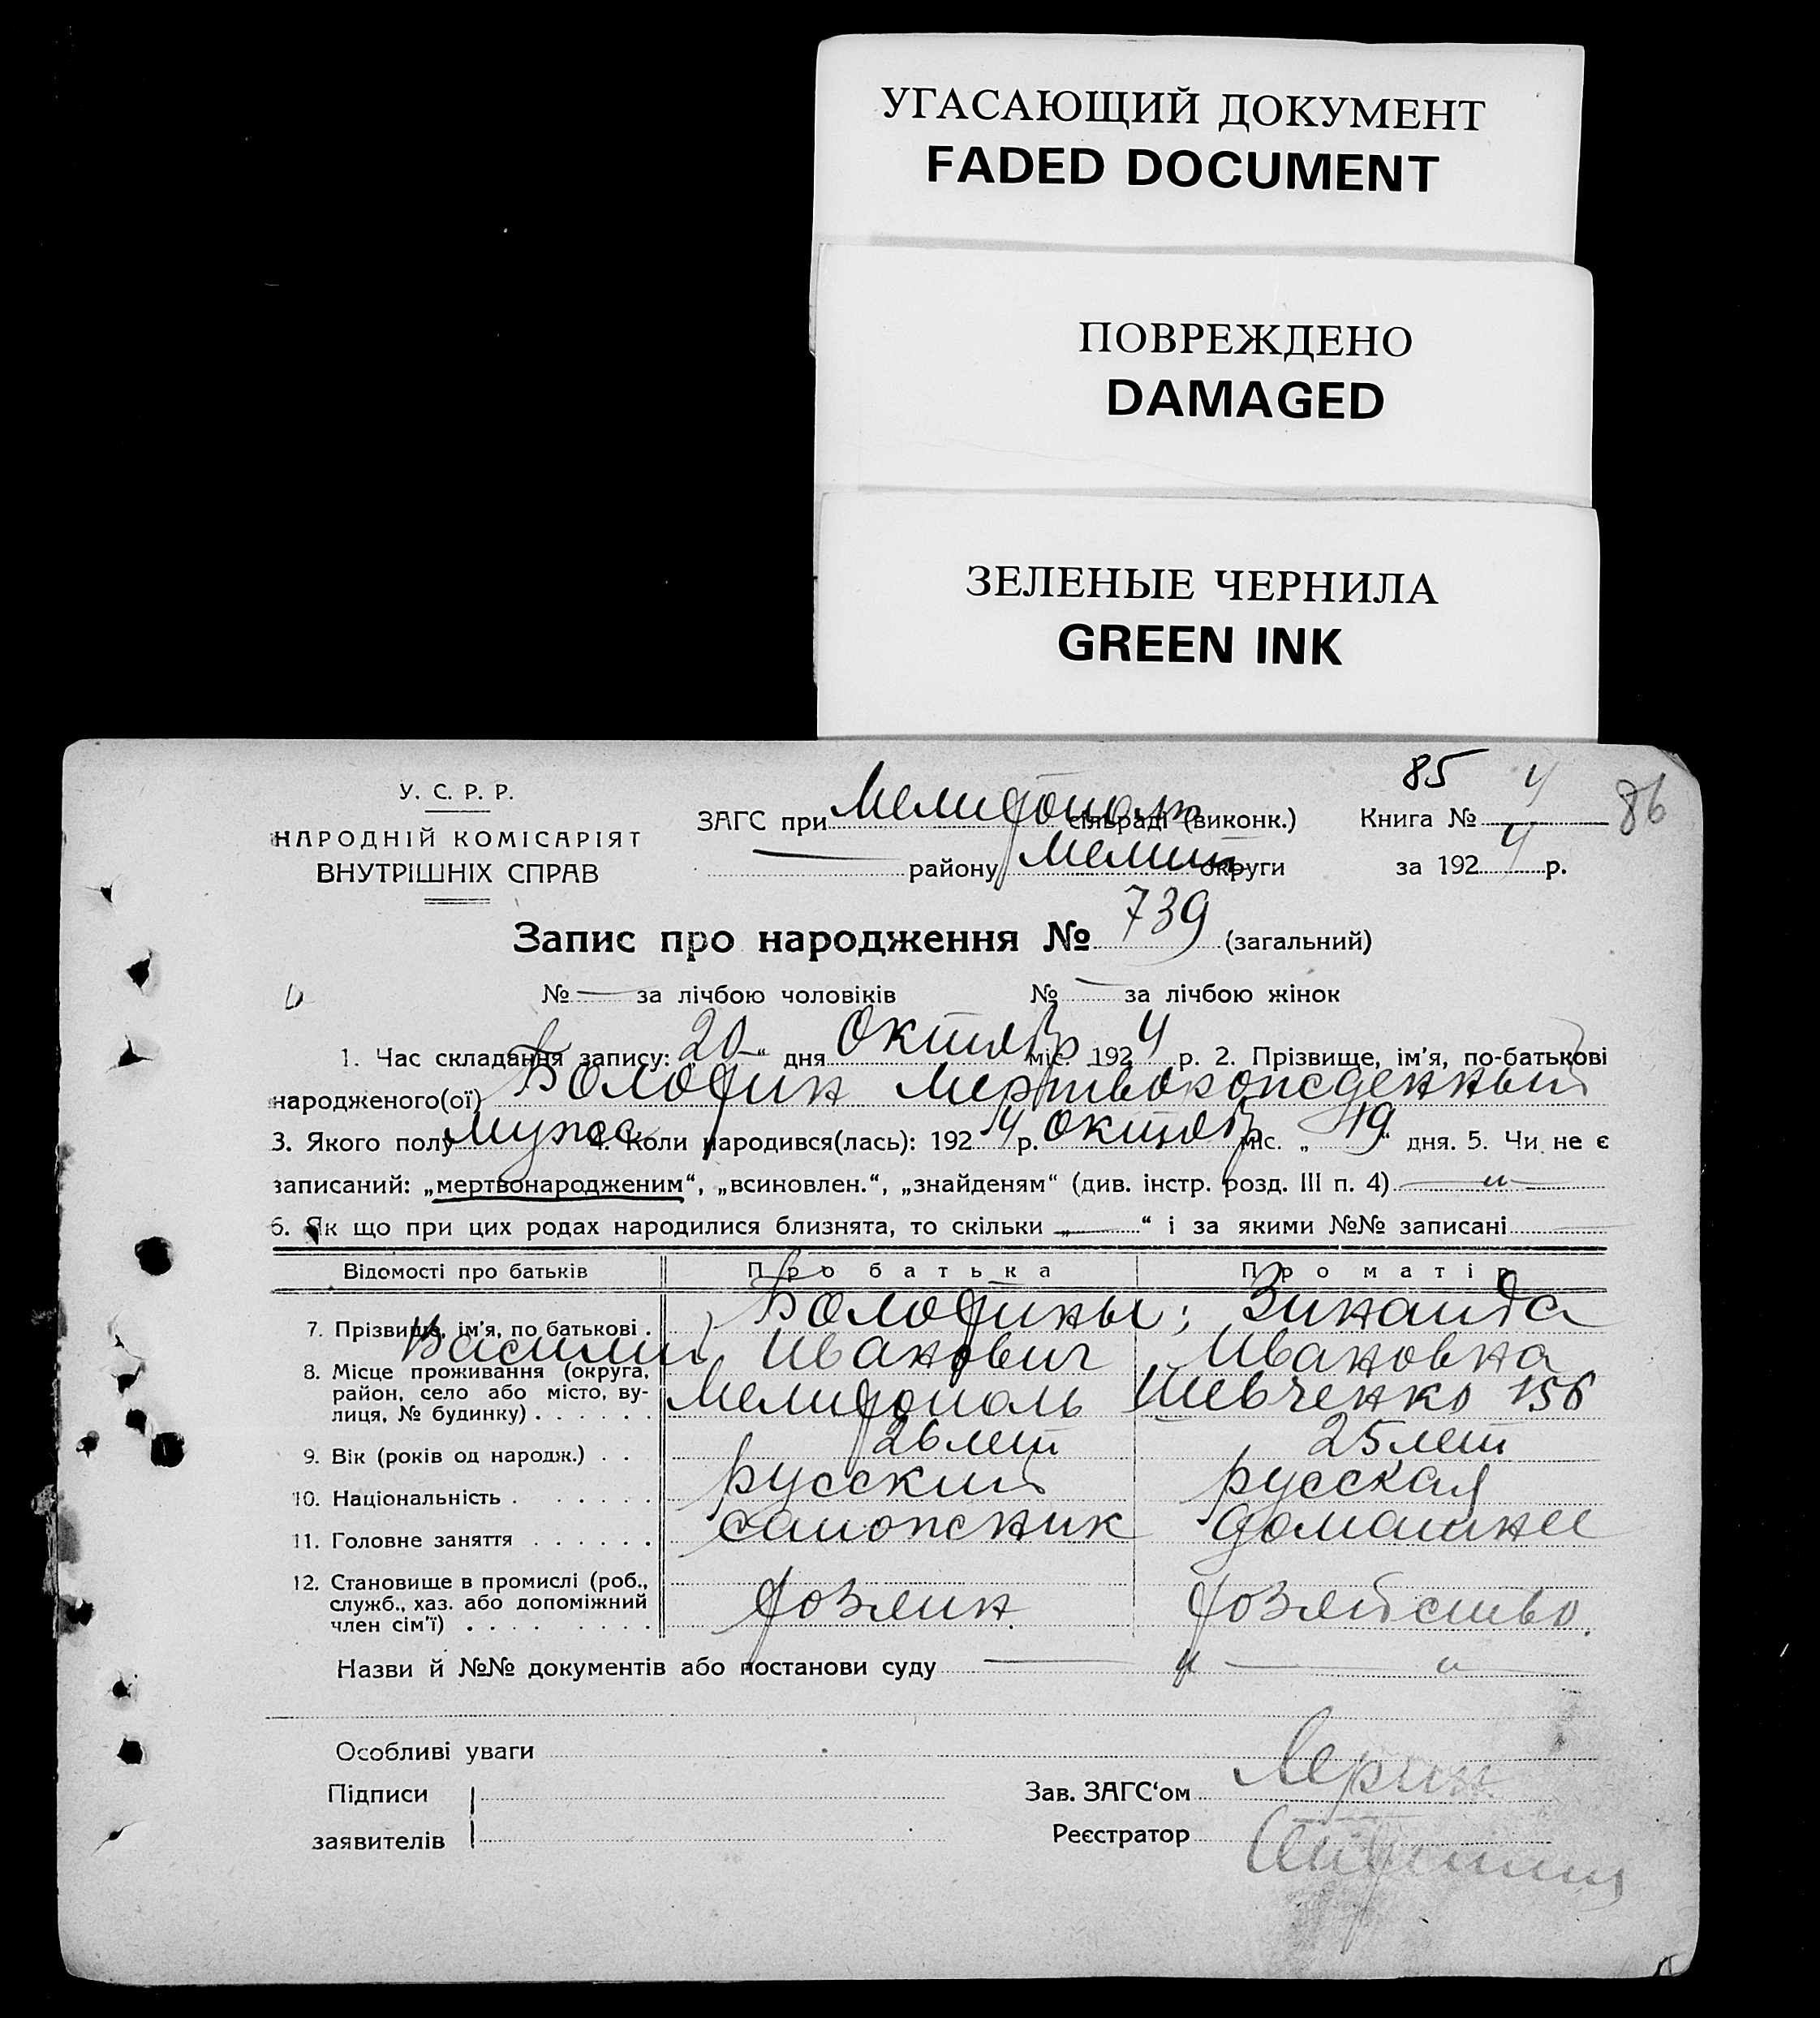 УГАСАЮЩИЙ ДОКУМЕНТ
FADED DOCUMENT
ПОВРЕЖДЕНО
DAMAGED
ЗЕЛЕНЫЕ ЧЕРНИЛА
GREEN INK
85 4 86
У. С. Р. Р.
НАРОДНІЙ КОМІСАРІЯТ
ВНУТРІШНІХ СПРАВ
ЗАГС при Мелитополь сільраді (виконк.) Книга №
— району Мелит округи за 1924 р.
Запис про народження № 739 (загальний)
№ — за лічбою чоловіків № — за лічбою жінок
1. Час складання запису: 20 “ дня Октябр міс. 1924 р. 2. Прізвище, ім’я, по-батькові
народженого(ої) Болотин мертворожденный
3. Якого полу мужс 4. Коли народився(лась): 1924 р. Октябр міс. „ 19 “ дня. 5. Чи не є
записаний: „мертвонародженим“, „всиновлен.“, „знайденям“ (див. інстр. розд. III п. 4) — „ —
6. Як що при цих родах народилися близнята, то скільки „—“ і за якими №№ записані —
Відомості про батьків Про батька Про матір
7. Прізвище, ім’я, по батькові . Болотины; Зинаида
Василий Иванович Ивановна
8. Місце проживання (округа, район, село або місто, вулиця, № будинку) . . . . . . Мелитополь Шевченко 156
9. Вік (років од народж.) . . 26 лет 25 лет
10. Національність . . . . . . русский русская
11. Головне заняття . . . . . . сапожник домашнее
12. Становище в промислі (роб., служб., хаз. або допоміжний член сім’ї) . . . . . . . хозяин хозяйство.
Назви й №№ документів або постанови суду — „ — „ —
Особливі уваги
Підписи
заявителів
Зав. ЗАГС‘ом
Реєстратор